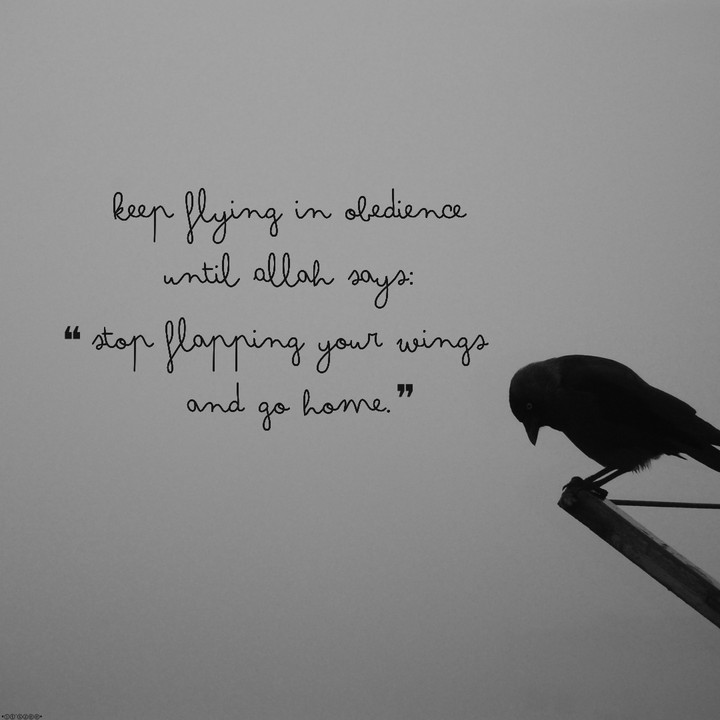 keep flying in obedience
until allah says:
❝ stop flapping your wings
and go home.❞